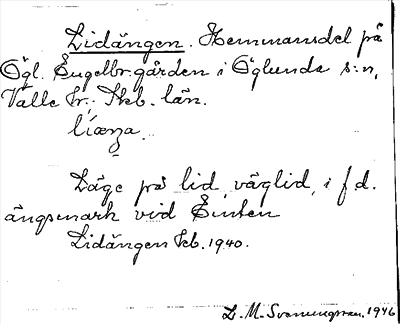 Lidängen. Hemmansdel på
Ögl. Engelbr.gården i Öglunda s:n,
Valle hr., Skb. län.
Läge på lid, väglid, i f d.
ängsmark vid
Lidängen Kb. 1940.
L. M. Svanungsson. 1946